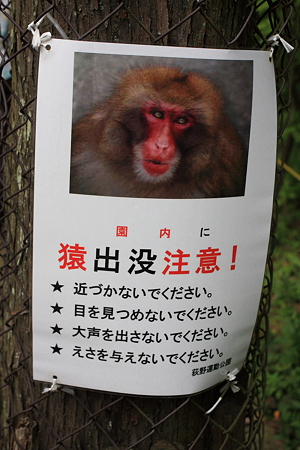 園内に
猿出没注意！
★ 近づかないでください。
★ 目を見つめないでください。
★ 大声を出さないでください。
★ えさを与えないでください。
荻野運動公園